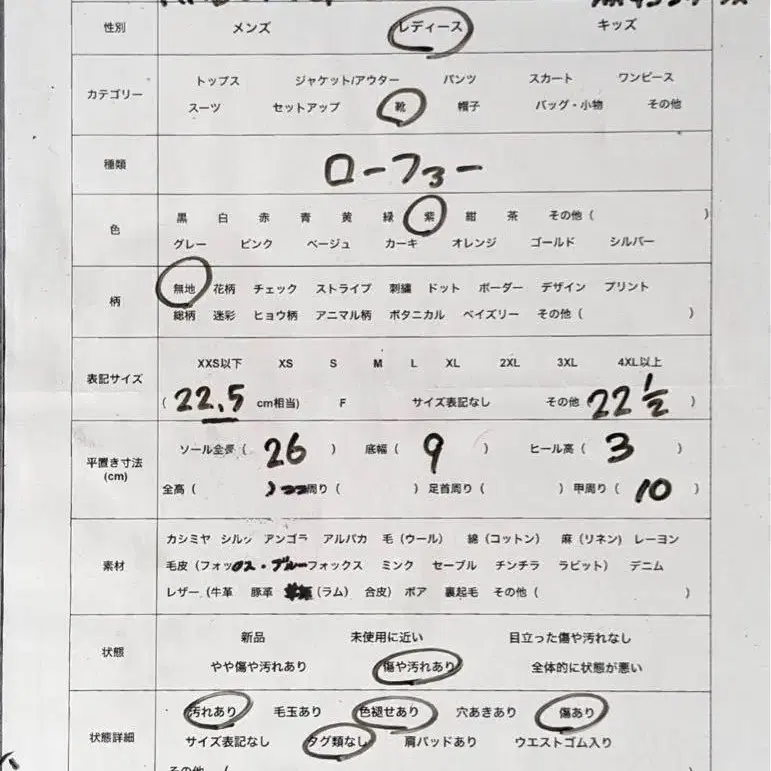 性別 メンズ レディース キッズ
カテゴリー トップス ジャケット/アウター パンツ スカート ワンピース
スーツ セットアップ 靴 帽子 バッグ・小物 その他
種類 ローファー
色 黒 白 赤 青 黄 緑 紫 紺 茶 その他（ ）
グレー ピンク ベージュ カーキ オレンジ ゴールド シルバー
柄 無地 花柄 チェック ストライプ 刺繍 ドット ボーダー デザイン プリント
総柄 迷彩 ヒョウ柄 アニマル柄 ボタニカル ペイズリー その他（ ）
表記サイズ XXS以下 XS S M L XL 2XL 3XL 4XL以上
（ 22.5 cm相当） F サイズ表記なし その他 22 1/2 ）
平置き寸法 (cm) ソール全長（ 26 ） 底幅（ 9 ） ヒール高（ 3 ）
全高（ ） 周り（ ）足首周り（ ）甲周り（ 10 ）
素材 カシミヤ シルク アンゴラ アルパカ 毛（ウール） 綿（コットン） 麻（リネン） レーヨン
毛皮（フォックス・ブルーフォックス ミンク セーブル チンチラ ラビット） デニム
レザー（牛革 豚革 （ラム） 合皮） ボア 裏起毛 その他（ ）
状態 新品 未使用に近い 目立った傷や汚れなし
やや傷や汚れあり 傷や汚れあり 全体的に状態が悪い
状態詳細 汚れあり 毛玉あり 色褪せあり 穴あきあり 傷あり
サイズ表記なし タグ類なし 肩パッドあり ウエストゴム入り
その他（